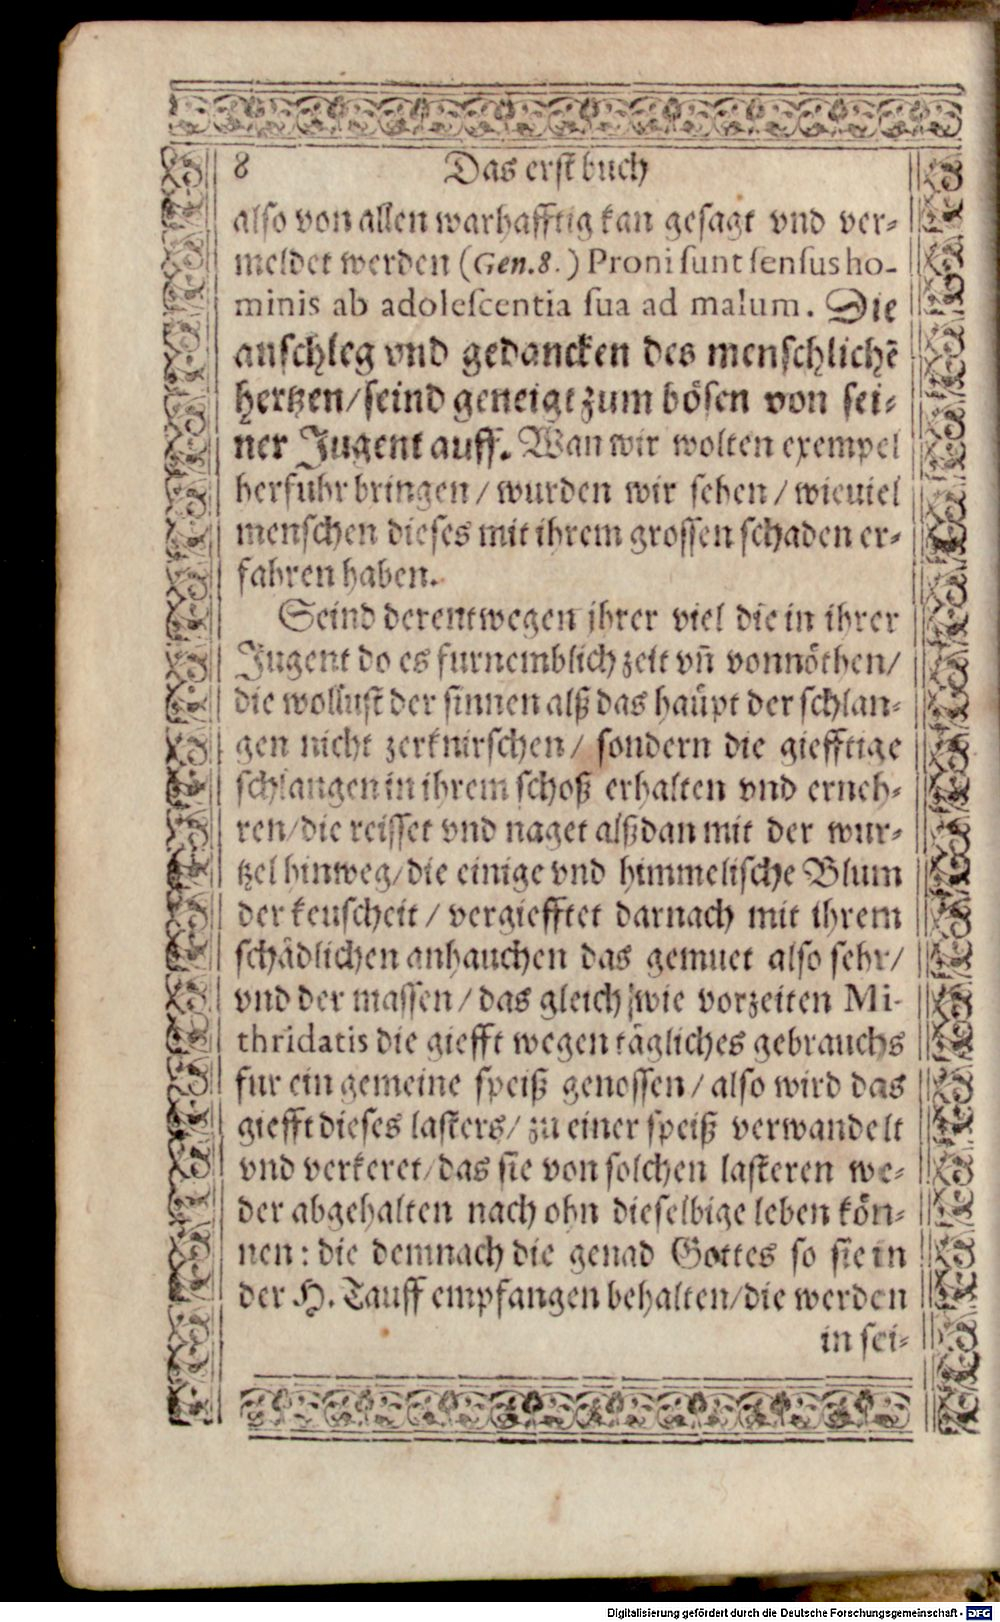 8 Das erst buch
also von allen warhafftig kan gesagt vnd ver-
meldet werden (Gen.8.) Proni sunt sensus ho-
minis ab adolescentia sua ad malum. Die
anschleg vnd gedancken des menschlichē
hertzen/seind geneigt zum bösen von sei-
ner Jugent auff. Wan wir wolten exempel
herfuhr bringen / wurden wir sehen / wieuiel
menschen dieses mit ihrem grossen schaden er-
fahren haben.
Seind derentwegen jhrer viel die in ihrer
Jugent do es furnemblich zeit vn̄ vonnöthen/
die wollust der sinnen alß das haüpt der schlan-
gen nicht zerknirschen / sondern die giefftige
schlangen in ihrem schoß erhalten vnd erneh-
ren/die reisset vnd naget alßdan mit der wur-
tzel hinweg/die einige vnd himmelische Blum
der keuscheit / vergiefftet darnach mit ihrem
schädlichen anhauchen das gemuet also sehr/
vnd der massen / das gleich wie vorzeiten Mi-
thridatis die giefft wegen tägliches gebrauchs
fur ein gemeine speiß genossen / also wird das
giefft dieses lasters/ zu einer speiß verwandelt
vnd verkeret/das sie von solchen lasteren we-
der abgehalten nach ohn dieselbige leben kön-
nen : die demnach die genad Gottes so sie in
der H. Tauff empfangen behalten/die werden
in sei-
Digitalisierung gefördert durch die Deutsche Forschungsgemeinschaft - DFG